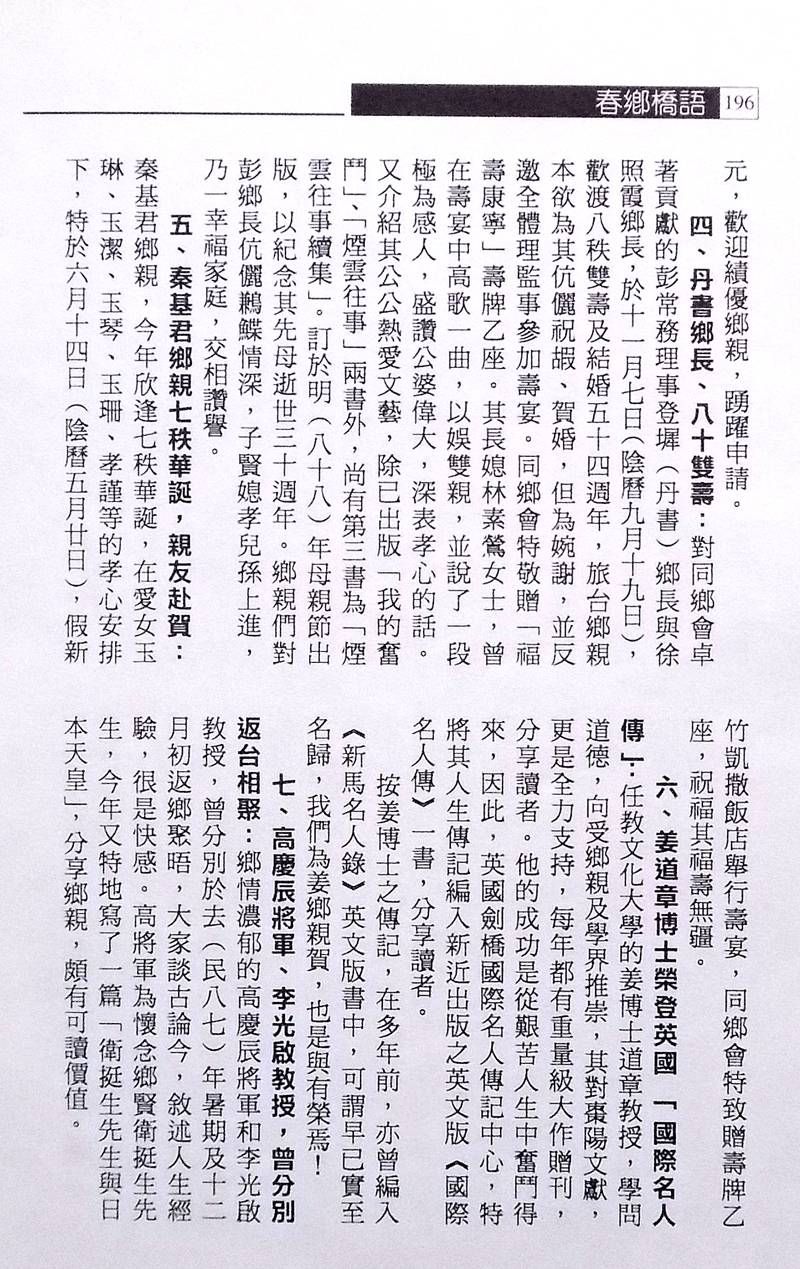 春鄉橋語 196
元，歡迎績優鄉親，踴躍申請。
四、丹書鄉長、八十雙壽：對同鄉會卓
著貢獻的彭常務理事登墀（丹書）鄉長與徐
照霞鄉長，於十一月七日（陰曆九月十九日），
歡渡八秩雙壽及結婚五十四週年，旅台鄉親
本欲為其伉儷祝嘏、賀婚，但為婉謝，並反
邀全體理監事參加壽宴。同鄉會特敬贈「福
壽康寧」壽牌乙座。其長媳林素鶯女士，曾
在壽宴中高歌一曲，以娛雙親，並說了一段
極為感人，盛讚公婆偉大，深表孝心的話。
又介紹其公公熱愛文藝，除已出版「我的奮
鬥」、「煙雲往事」兩書外，尚有第三書為「煙
雲往事續集」。訂於明（八十八）年母親節出
版，以紀念其先母逝世三十週年。鄉親們對
彭鄉長伉儷鶼鰈情深，子賢媳孝兒孫上進，
乃一幸福家庭，交相讚譽。
五、秦基君鄉親七秩華誕，親友赴賀：
秦基君鄉親，今年欣逢七秩華誕，在愛女玉
琳、玉潔、玉琴、玉珊、孝謹等的孝心安排
下，特於六月十四日（陰曆五月廿日），假新
竹凱撒飯店舉行壽宴，同鄉會特致贈壽牌乙
座，祝福其福壽無疆。
六、姜道章博士榮登英國「國際名人
傳」：任教文化大學的姜博士道章教授，學問
道德，向受鄉親及學界推崇，其對棗陽文獻，
更是全力支持，每年都有重量級大作贈刊，
分享讀者。他的成功是從艱苦人生中奮鬥得
來，因此，英國劍橋國際名人傳記中心，特
將其人生傳記編入新近出版之英文版《國際
名人傳》一書，分享讀者。
按姜博士之傳記，在多年前，亦曾編入
《新馬名人錄》英文版書中，可謂早已實至
名歸，我們為姜鄉親賀，也是與有榮焉！
七、高慶辰將軍、李光啟教授，曾分別
返台相聚：鄉情濃郁的高慶辰將軍和李光啟
教授，曾分別於去（民八七）年暑期及十二
月初返鄉聚晤，大家談古論今，敘述人生經
驗，很是快感。高將軍為懷念鄉賢衛挺生先
生，今年又特地寫了一篇「衛挺生先生與日
本天皇」，分享鄉親，頗有可讀價值。